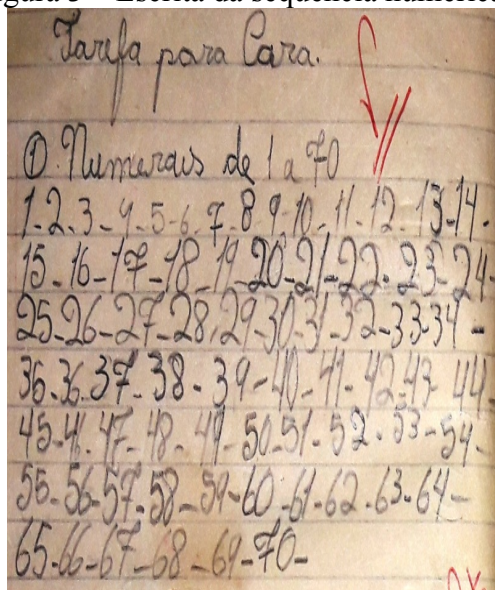 Figura 3 – Escrita da sequência numérica
Tarefa para Cara.
① Numerais de 1 a 70
1-2-3-4-5-6-7-8-9-10-11-12-13-14-
15-16-17-18-19-20-21-22-23-24-
25-26-27-28-29-30-31-32-33-34-
36-36-37-38-39-40-41-42-43-44-
45-46-47-48-49-50-51-52-53-54-
55-56-57-58-59-60-61-62-63-64-
65-66-67-68-69-70-